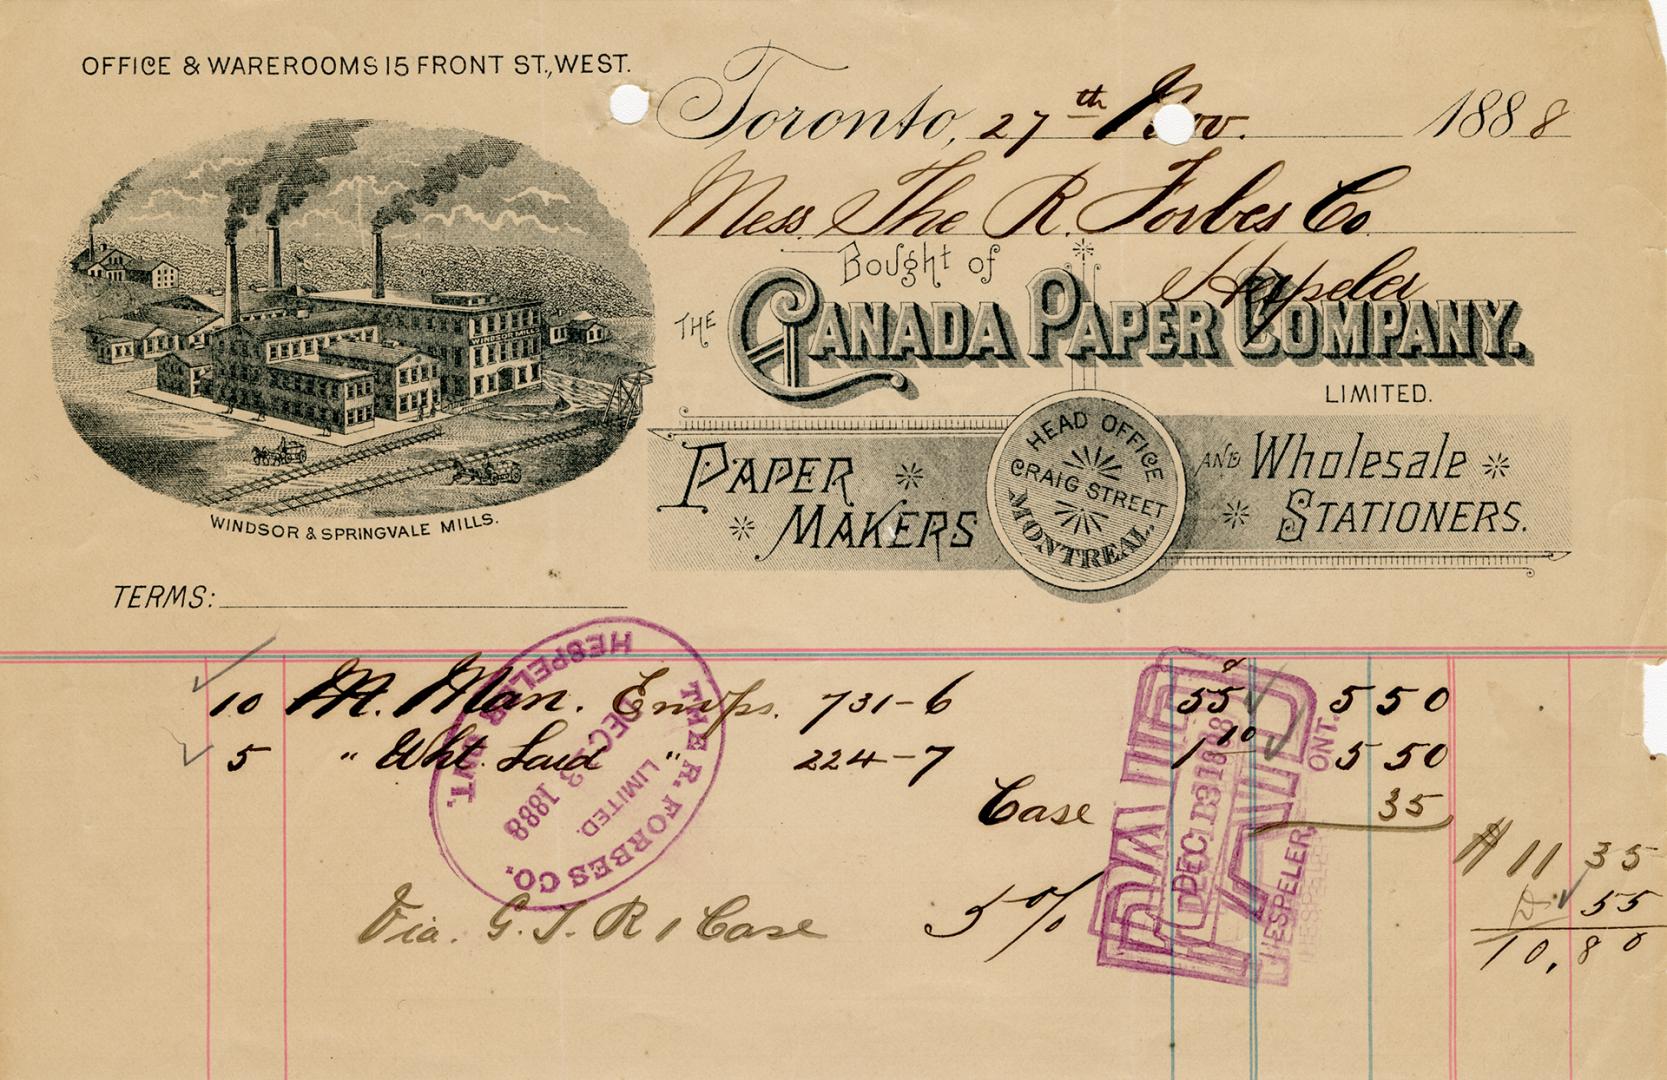 OFFICE & WAREROOMS 15 FRONT ST., WEST.
Toronto, 27th Nov. 1888
Mess The R. Forbes Co
Hespeler
Bought of
THE CANADA PAPER COMPANY.
LIMITED.
PAPER MAKERS
HEAD OFFICE
CRAIG STREET
MONTREAL.
AND Wholesale STATIONERS.
WINDSOR MILLS
WINDSOR & SPRINGVALE MILLS.
TERMS:
10 M. Man. Envps. 731-6 55 5 50
5 " Wht. Laid " 224-7 1 10 5 50
Case 35
$ 11 35
5 % 55
10.80
Via. G. T. R 1 Case
THE R. FORBES CO.
LIMITED.
DEC 3 1888
HESPELER ONT.
PAID
DEC 3 1888
HESPELER, ONT.